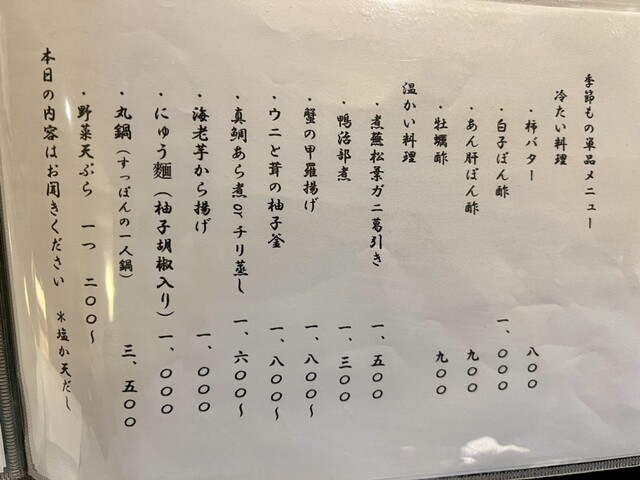 季節もの単品メニュー
冷たい料理
・柿バター 八〇〇
・白子ぽん酢 一、〇〇〇
・あん肝ぽん酢 九〇〇
・牡蠣酢 九〇〇
温かい料理
・煮蕪松葉ガニ葛引き 一、五〇〇
・鴨治部煮 一、三〇〇
・蟹の甲羅揚げ 一、八〇〇~
・ウニと茸の柚子釜 一、八〇〇~
・真鯛あら煮orチリ蒸し 一、六〇〇~
・海老芋から揚げ 一、〇〇〇
・にゅう麺(柚子胡椒入り) 一、〇〇〇
・丸鍋(すっぽんの一人鍋) 三、五〇〇
・野菜天ぷら 一つ 二〇〇~
本日の内容はお聞きください ※塩か天だし